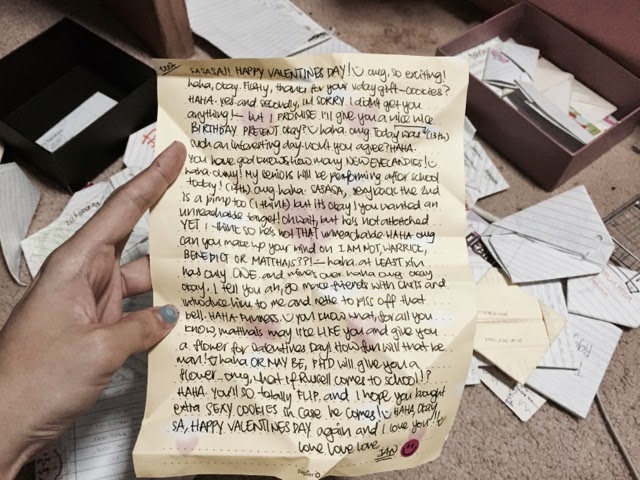 SASASA!! HAPPY VALENTINES DAY! omg, so exciting!
haha, okay. Firstly, thanks for your vday gift - cookies?
HAHA. yes and secondly, im SORRY I didn't get you
anything!~ but I PROMISE I'll give you a nice nice
BIRTHDAY PRESENT okay? haha. omg. Today was (13th)
such an interesting day. wout you agree? HAHA.
You have god knows how many NEW EYECANDIES!
haha okay! My seniors will be performing after school
today! (14th) omg haha. SASASA, sexyback the 2nd
is a pimp too (i think) but its okay! you wanted an
unreachable target! oh wait, but he's not attached
YET i think so he's not THAT unreachable HAHA omg
can you make up your mind on IAN, NAT, WARRICK,
BENEDICT OR MATTHAIS??!~ haha. at LEAST xin
has only ONE. and mine's over haha omg. okay
okay. I tell you ah, go make friends with Chris and
introduce him to me and nette to piss off that
bell. HAHA. you know what, for all you
know, matthais may like LIKE you and give you
a flower for valentines day! How fun will that be
man! haha OR MAYBE, PHD will give you a
flower... omg, what if Russell comes to school!?
HAHA. You'll SO totally FLIP. and I hope you bought
extra SEXY COOKIES in case he comes! HAHA, okay
SA, HAPPY VALENTINES DAY again and I love you!!
love love love, JAN